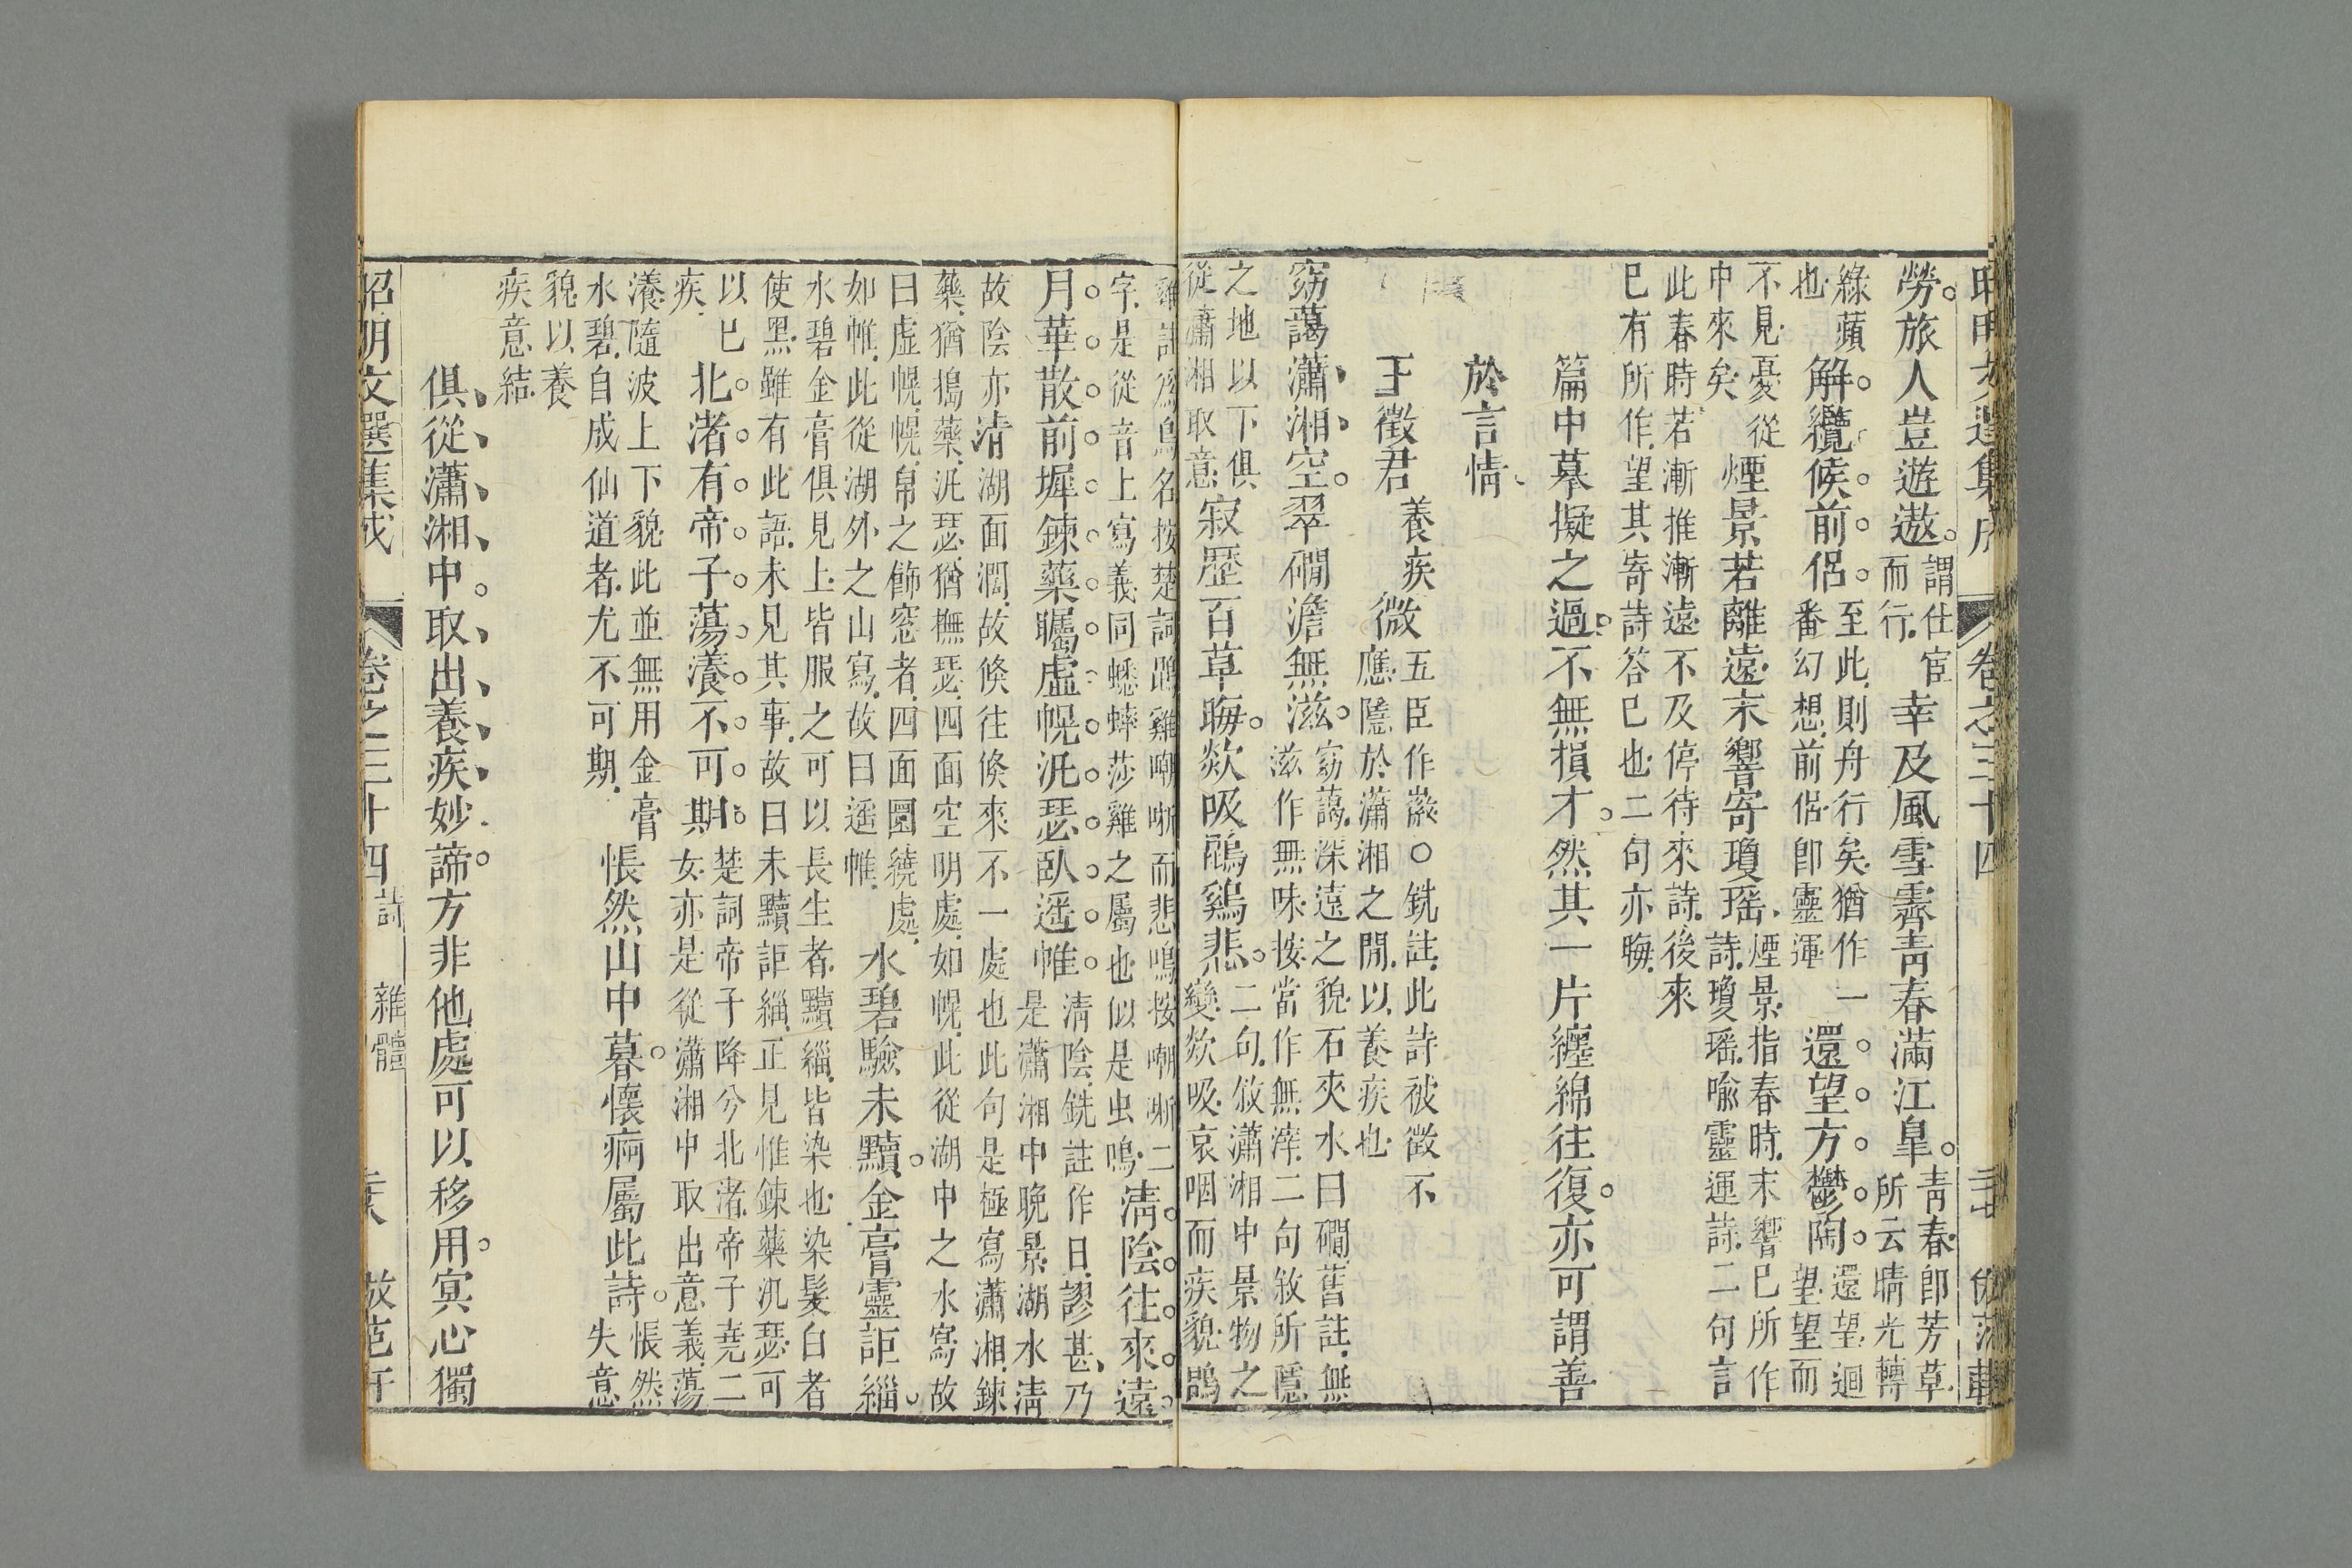 勞旅人豈遊遨謂仕宦而行幸及風雪霽青春滿江臯青春卽芳草所云晴光轉
綠蘋也解纜候前侶至此則舟行矣猶作一番幻想前侶卽靈運還望方鬱陶還望迴望望而
不見憂從中來矣煙景若離遠末響寄瓊瑤煙景指春時末響巳所作詩瓊瑤喻靈運詩二句言
此春時若漸推漸遠不及停待來詩後來
巳有所作望其寄詩答巳也二句亦晦
篇中摹擬之過不無損才然其一片纏綿往復亦可謂善
於言情
王徵君養疾微五臣作徽○銑註此詩被徵不應隱於瀟湘之閒以養疾也
窈藹瀟湘空翠磵澹無滋窈藹深遠之貌石夾水曰磵舊註無滋作無味按當作無滓二句敘所隱
之地以下俱從瀟湘取意寂歷百草晦欻吸鵾鷄悲二句敘瀟湘中景物之變欻吸哀咽而疾貌鵾
雞註爲鳥名按楚詞鵾雞嘲哳而悲鳴按嘲哳二字是從音上寫義同蟋蟀莎雞之屬也似是虫鳴淸陰往來遠
月華散前墀鍊藥矚虛幌汎瑟臥遥帷淸陰銑註作日謬甚乃是瀟湘中晚景湖水淸
故陰亦淸湖面濶故倏往倏來不一處也此句是極寫瀟湘鍊
藥猶搗藥汎瑟猶撫瑟四面空明處如幌此從湖中之水寫故
曰虛幌幌帛之飾窓者四面圍繞處如帷此從湖外之山寫故曰遥帷水碧驗未黷金膏靈詎緇
水碧金膏俱見上皆服之可以長生者黷緇皆染也染髮白者
使黑雖有此語未見其事故曰未黷詎緇正見惟鍊藥汎瑟可
以巳疾北渚有帝子蕩瀁不可期楚詞帝子降兮北渚帝子堯二女亦是從瀟湘中取出意義蕩
瀁隨波上下貌此並無用金膏水碧自成仙道者尤不可期悵然山中暮懷痾屬此詩悵然失意
貌以養疾意結
俱從瀟湘中取出養疾妙諦方非他處可以移用冥心獨
昭明文選集成 卷之三十四 詩 雜體